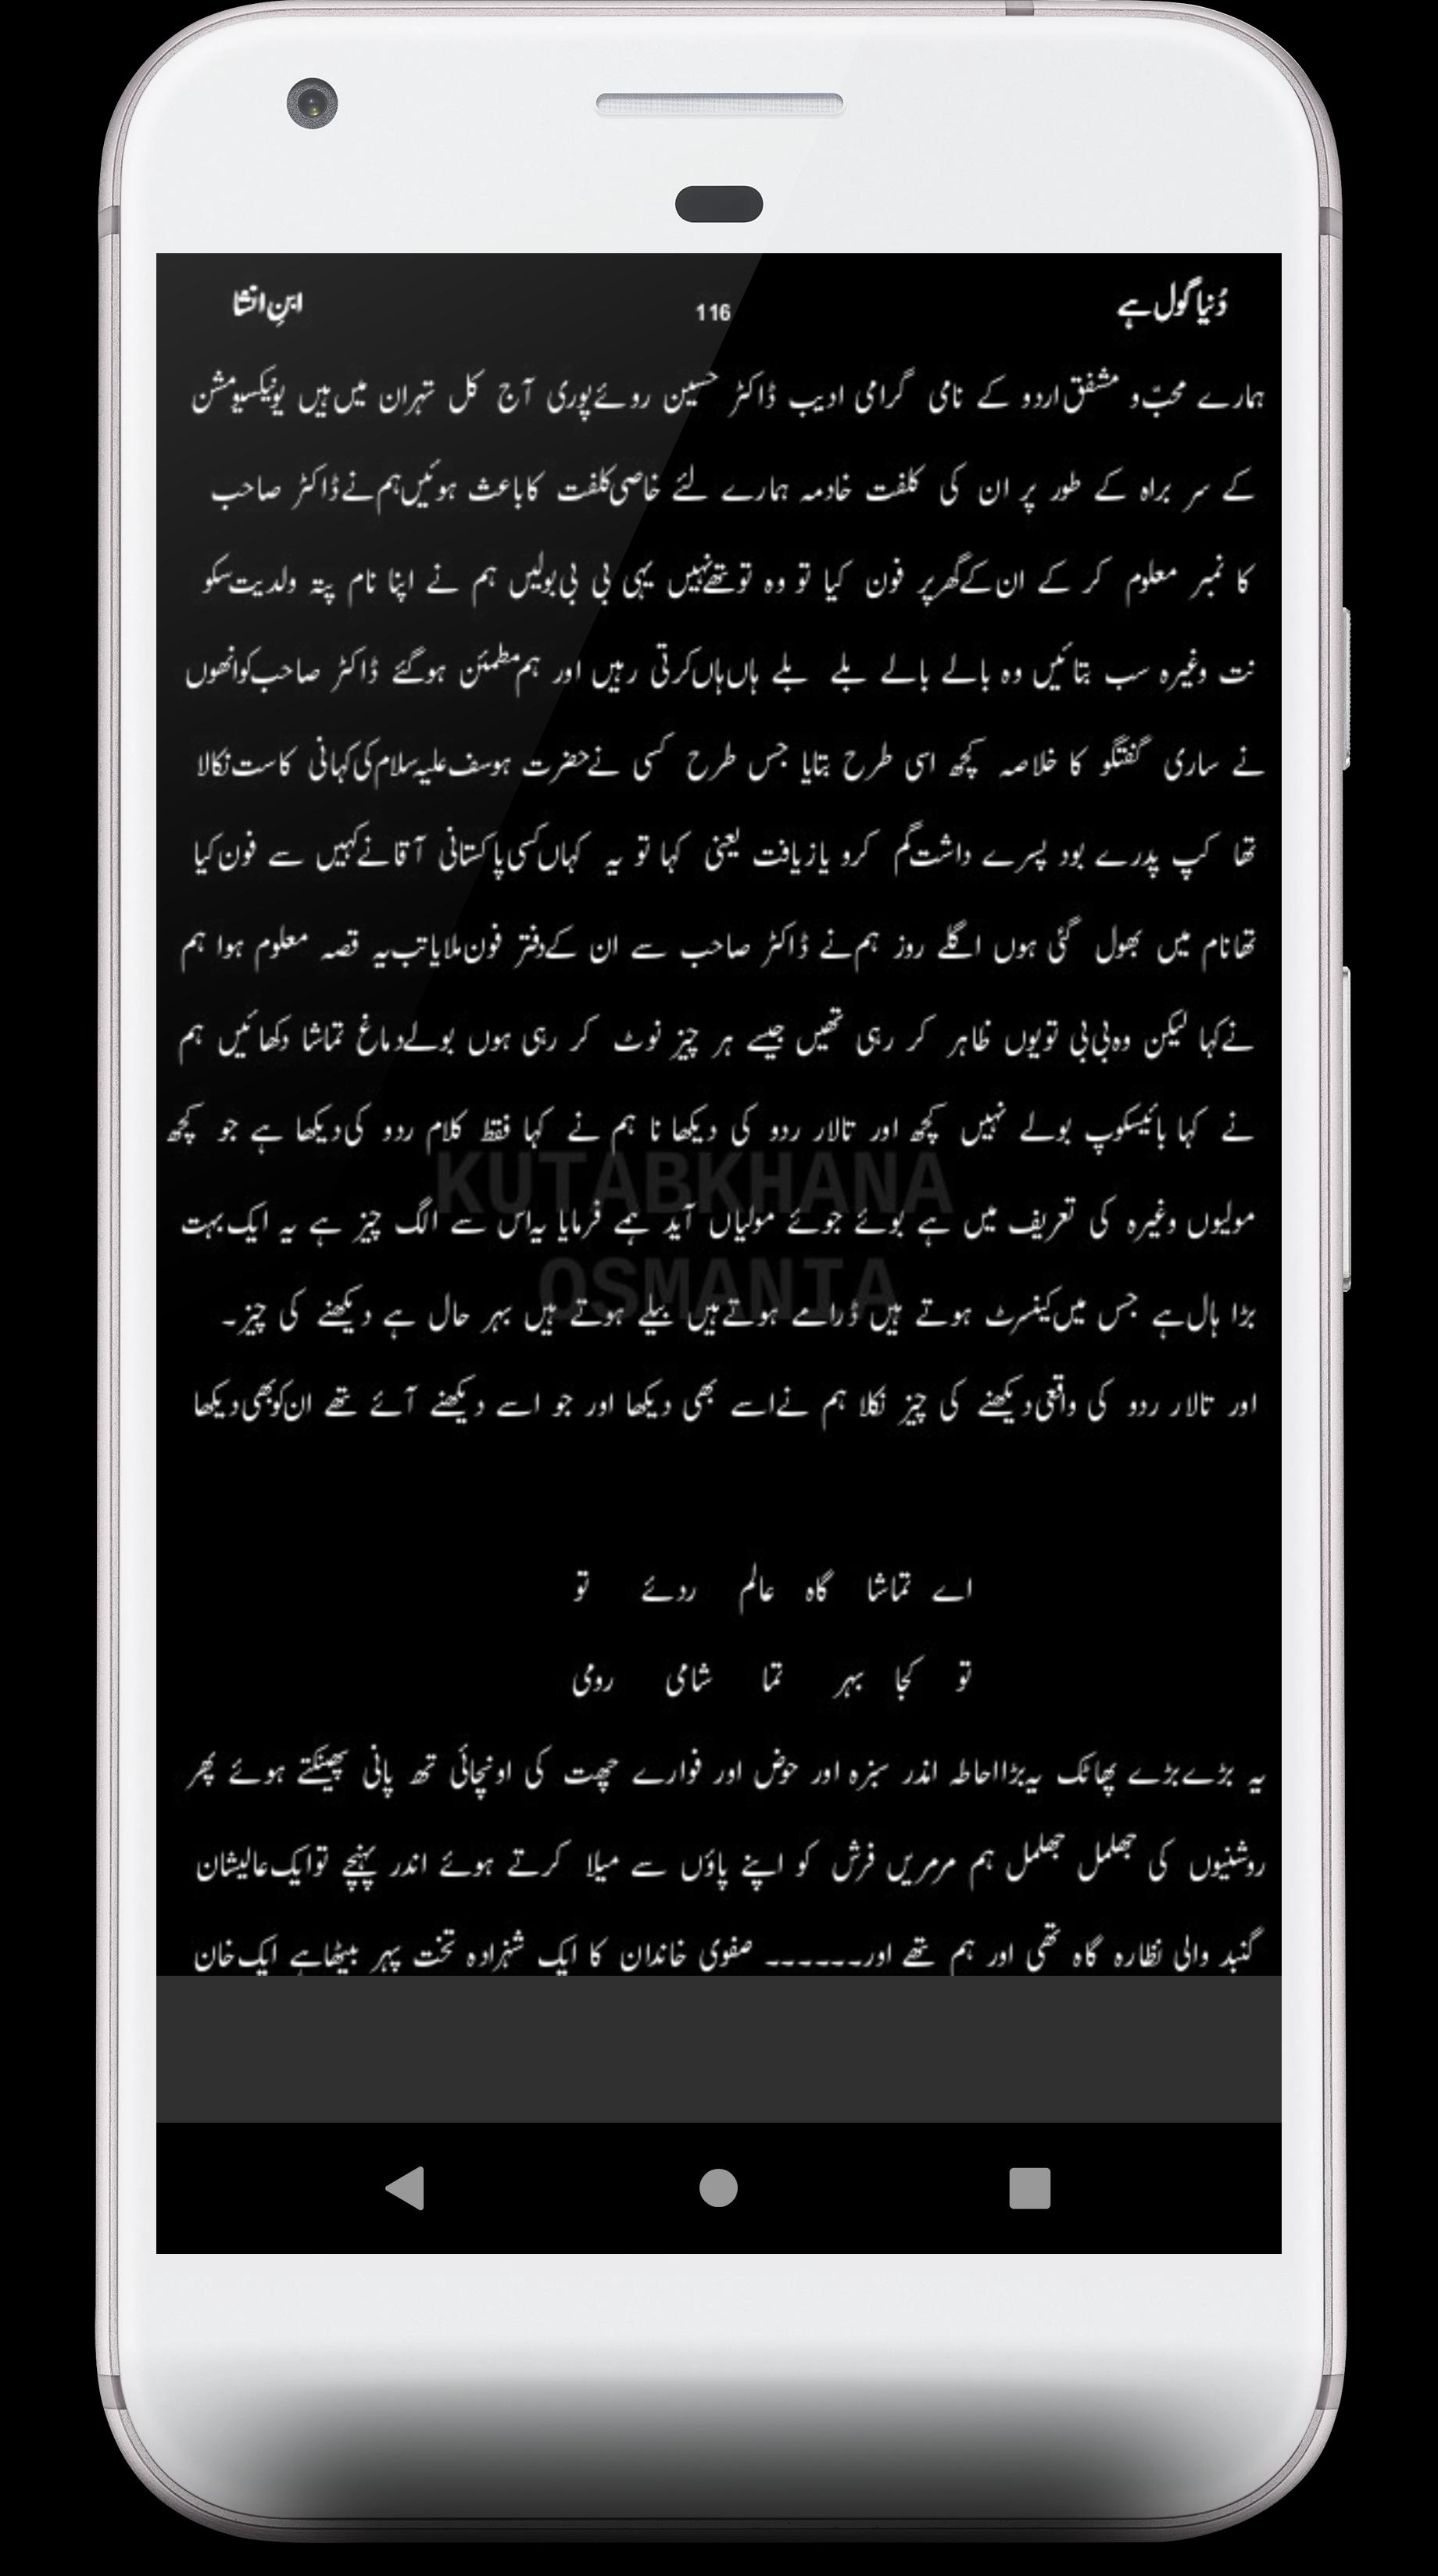 دُنیا گول ہے
116
ابنِ انشا
ہمارے محبّ و مشفق اردو کے نامی گرامی ادیب ڈاکٹر حسین روئے پوری آج کل تہران میں ہیں یونیکسیو مشن
کے سر براہ کے طور پر ان کی کلفت خادمہ ہمارے لئے خاصی کلفت کا باعث ہوئیں ہم نے ڈاکٹر صاحب
کا نمبر معلوم کر کے ان کے گھر پر فون کیا تو وہ تو تھے نہیں یہی بی بی بولیں ہم نے اپنا نام پتہ ولدیت سکو
نت وغیرہ سب بتائیں وہ بالے بالے بلے بلے ہاں ہاں کرتی رہیں اور ہم مطمئن ہو گئے ڈاکٹر صاحب کو انھوں
نے ساری گفتگو کا خلاصہ کچھ اسی طرح بتایا جس طرح کسی نے حضرت یوسف علیہ سلام کی کہانی کا ست نکالا
تھا کپ پدرے بود پسرے داشت گم کرو یاز یافت یعنی کہا تو یہ کہاں کسی پاکستانی آقا نے کہیں سے فون کیا
تھا نام میں بھول گئی ہوں اگلے روز ہم نے ڈاکٹر صاحب سے ان کے دفتر فون ملایا تب یہ قصہ معلوم ہوا ہم
نے کہا لیکن وہ بی بی تو یوں ظاہر کر رہی تھیں جیسے ہر چیز نوٹ کر رہی ہوں بولے دماغ تماشا دکھائیں ہم
نے کہا بائیسکوپ بولے نہیں کچھ اور تالار ردو کی دیکھا نا ہم نے کہا فقط کلام ردو کی دیکھا ہے جو کچھ
مولیوں وغیرہ کی تعریف میں ہے بوئے جوئے مولیاں آید ہمے فرمایا یہ اس سے الگ چیز ہے یہ ایک بہت
بڑا ہال ہے جس میں کینسرٹ ہوتے ہیں ڈرامے ہوتے ہیں بیلے ہوتے ہیں بہر حال ہے دیکھنے کی چیز۔
اور تالار ردو کی واقعی دیکھنے کی چیز نکلا ہم نے اسے بھی دیکھا اور جو اسے دیکھنے آئے تھے ان کو بھی دیکھا
اے تماشا گاہ عالم ردئے تو
تو کجا بہر تما شامی رومی
یہ بڑے بڑے پھاٹک یہ بڑا احاطہ انذر سبزہ اور حوض اور فوارے چھت کی اونچائی تھ پانی پھینکتے ہوئے پھر
روشنیوں کی جھلمل جھلمل ہم مرمریں فرش کو اپنے پاؤں سے میلا کرتے ہوئے اندر پہنچے تو ایک عالیشان
گنبد والی نظارہ گاہ تھی اور ہم تھے اور۔۔۔۔۔۔ صفوی خاندان کا ایک شہزادہ تخت پہر بیٹھا ہے ایک خان
KUTABKHANA
OSMANIA